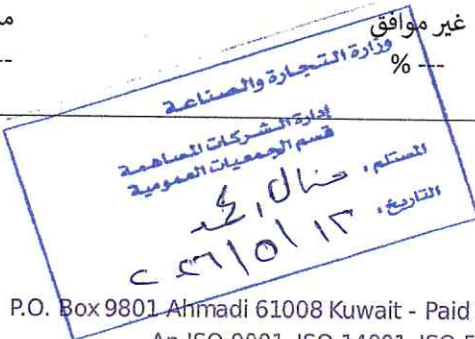 غير موافق
--- %
--
وزارة التجارة والصناعة
إدارة الشركات المساهمة
قسم الجمعيات العمومية
المستلم :
التاريخ :
P.O. Box 9801 Ahmadi 61008 Kuwait - Paid
An ISO 9001, ISO 14001, ISO